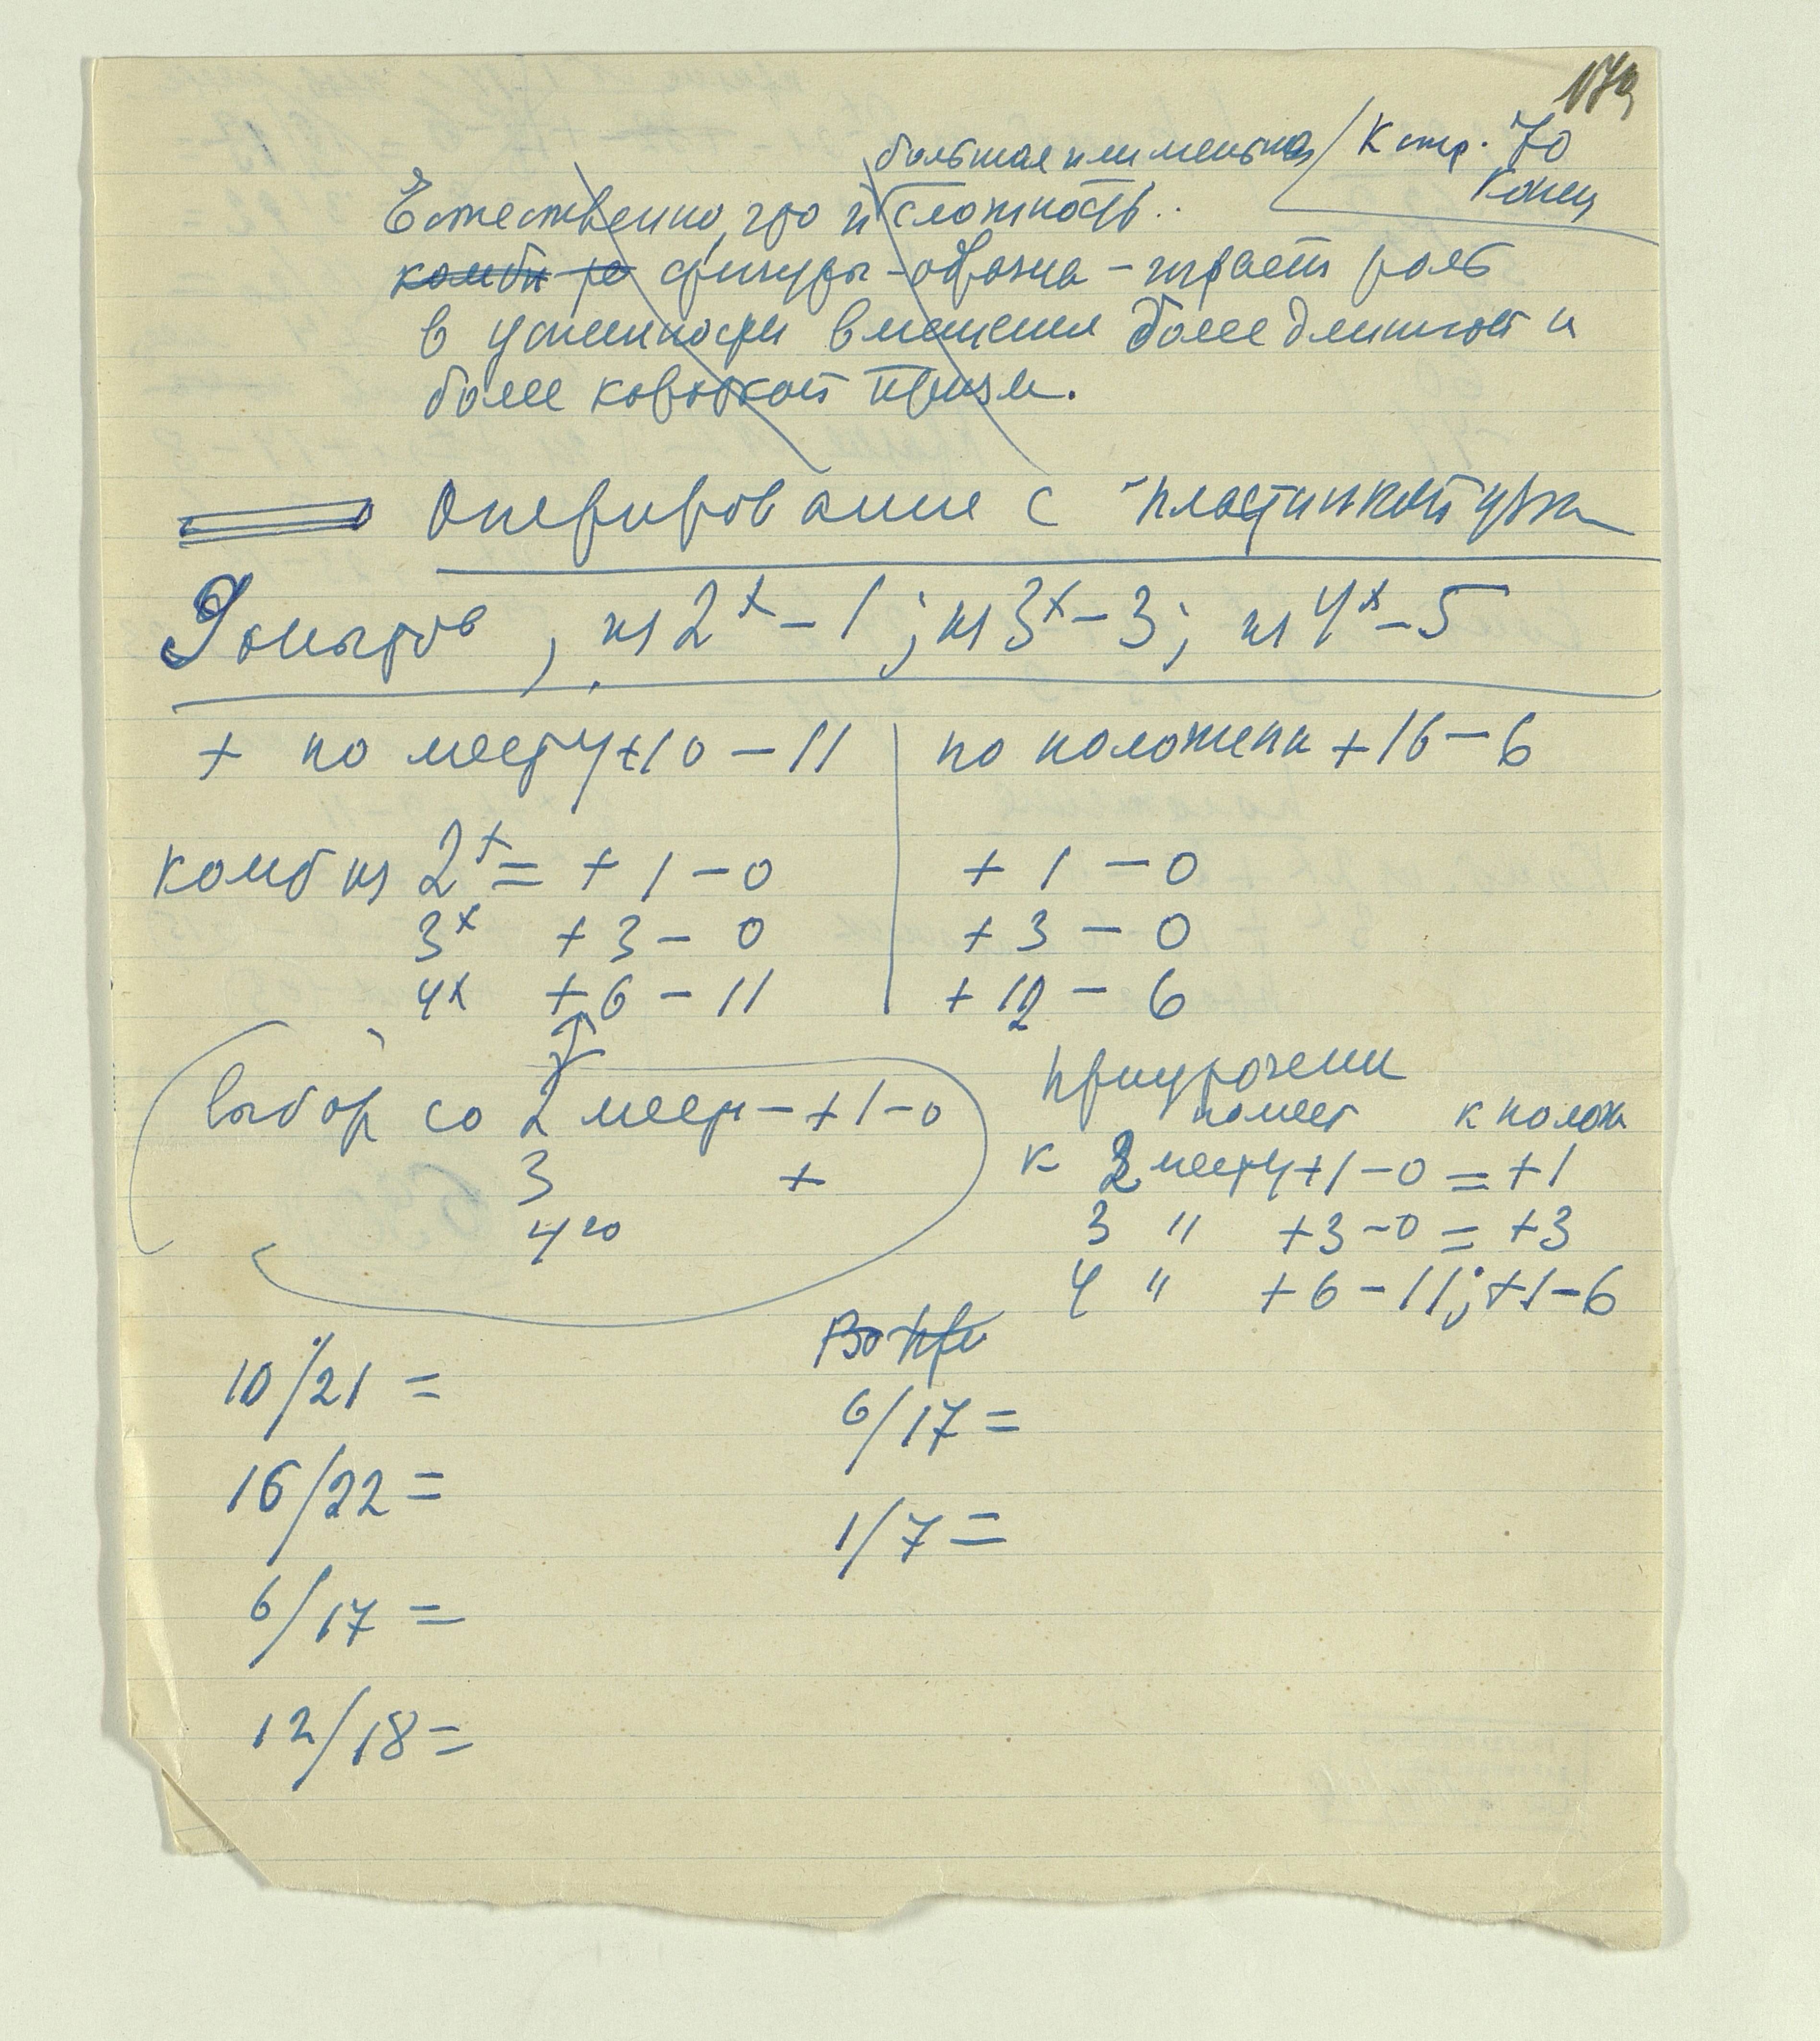 179
К стр. 70
Конец
большая или меньшая
Естественно, что и сложность
комби фигуры-образца - играет роль
в успешности вмещения более длинной и
более короткой призм.
Оперирование с пластинкой
9 опытов, из 2х - 1; из 3х - 3; из 4х - 5
+ по месту +10 - 11 | по положени +16 - 6
комб из 2х = + 1 - 0 | + 1 - 0
3х + 3 - 0 | + 3 - 0
4х + 6 - 11 | + 12 - 6
выбор со 2 мест - +1 - 0
3 +
4го
приурочени
помест к полож
к 2 месту +1 - 0 = +1
3 " +3 - 0 = +3
4 " +6 - 11; +1 - 6
10/21 =
16/22 =
6/17 =
12/18 =
6/17 =
1/7 =